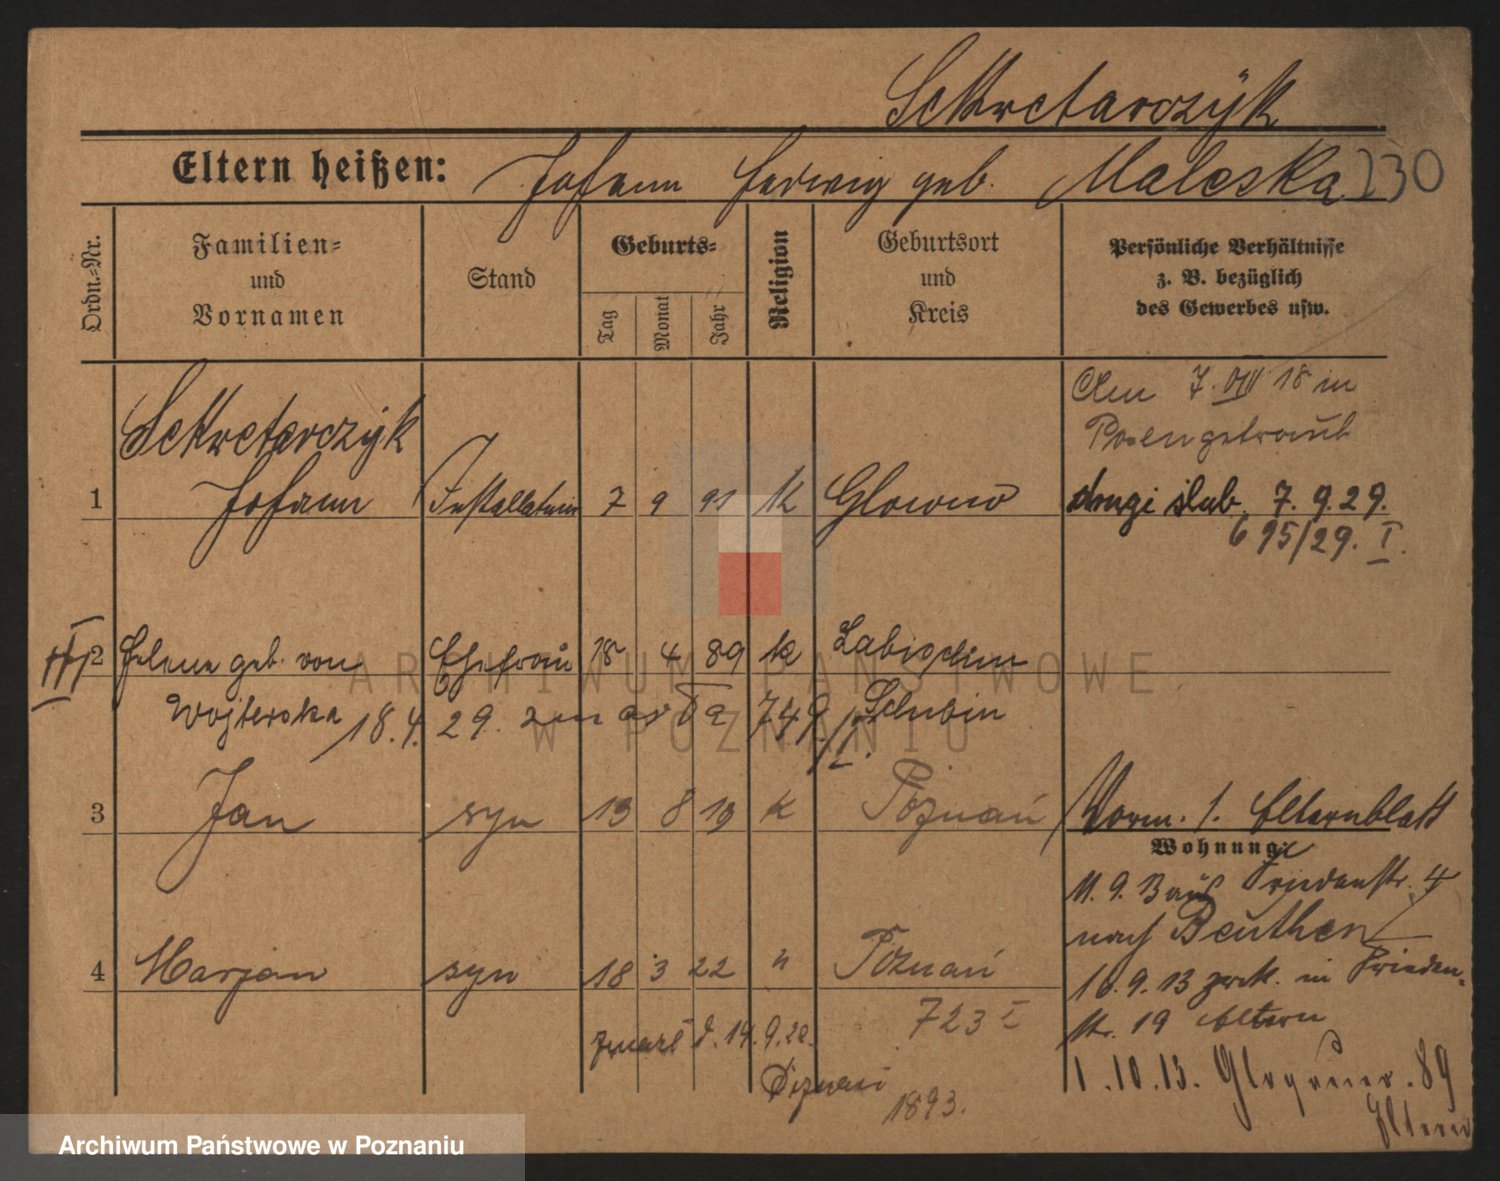 Sekretarczÿk
Eltern heißen: Johann Hedwig geb. Maleska 230
Ordn.=Nr.
Familien=
und
Vornamen
Stand
Geburts=
Tag
Monat
Jahr
Religion
Geburtsort
und
Kreis
Persönliche Verhältnisse
z. B. bezüglich
des Gewerbes usw.
Am 7. VIII 18 in
Posen getraut
Sekretarczÿk
1 Johann Installateur 7 9 91 K Glowno drugi slub 7. 9. 29.
695/29. I.
2 Helene geb. von Ehefrau 18 4 89 K Labischin
Wojterska 18. 4. 29. 749/I. Schubin
3 Jan syn 13 8 19 K Poznań Vorm. s. Elternblatt
Wohnung:
11. 9. 13 aus Friedenstr. 4
nach Beuthen
4 Marjan syn 18 3 22 " Poznań
16. 9. 13 zurk. in Frieden-
str. 19 Eltern
723 I
zmarł d. 19. 9. 22.
Poznań
1893.
1. 10. 13. Glogauer. 89
Eltern
ARCHIWUM PAŃSTWOWE
W POZNANIU
Archiwum Państwowe w Poznaniu